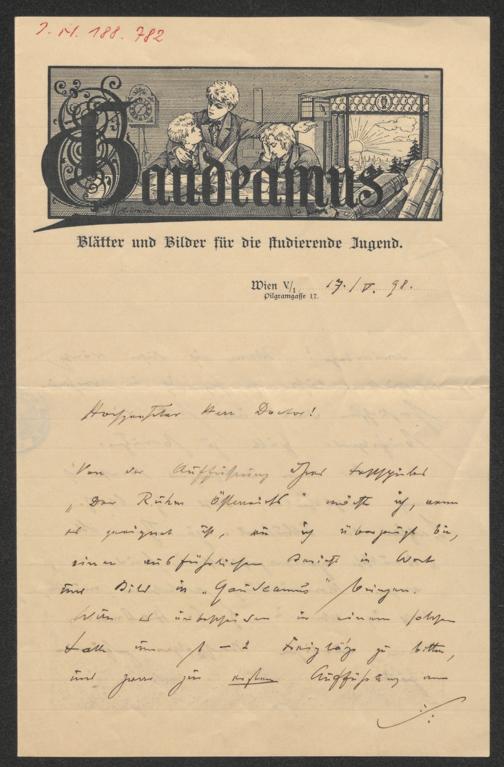 I.N. 188.782
Gaudeamus
Blätter und Bilder für die studierende Jugend.
Wien V/1 17./V. 98.
Pilgramgasse 17.
Hochgeehrter Herr Doctor!
Von der Aufführung Ihres Festspieles
„Der Ruhm Österreichs" möchte ich, wenn
es geeignet ist, wie ich überzeugt bin,
einen ausführlichen Bericht in Wort
und Bild in „Gaudeamus" bringen.
Wäre es unbescheiden in einem solchen
Falle um 1 – 2 Freiplätze zu bitten,
und zwar zur ersten Aufführung am
./.